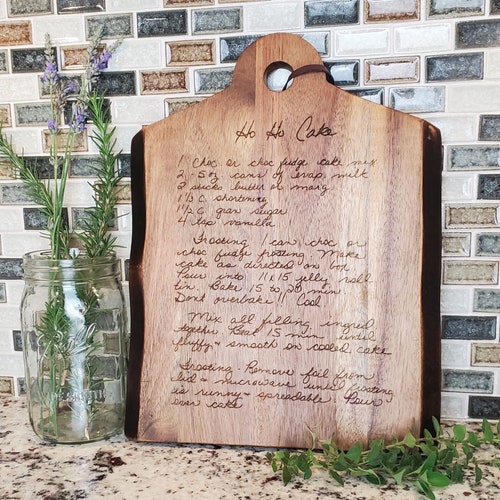 Ho Ho Cake
1 choc or choc fudge cake mix
2 - 5 oz cans of evap. milk
2 sticks butter or marg.
1 1/2 C. shortening
1 1/2 C gran sugar
4 tsp vanilla
Frosting 1 can choc or
choc fudge frosting. Make
cake as directed on box
Pour into 11x15 jelly roll
tin. Bake 15 to 20 min
Dont overbake!! Cool
Mix all filling ingred
together. Beat 15 min until
fluffy + smooth on cooled cake
Frosting: Remove foil from
lid + microwave until frosting
is runny + spreadable. Pour
over cake